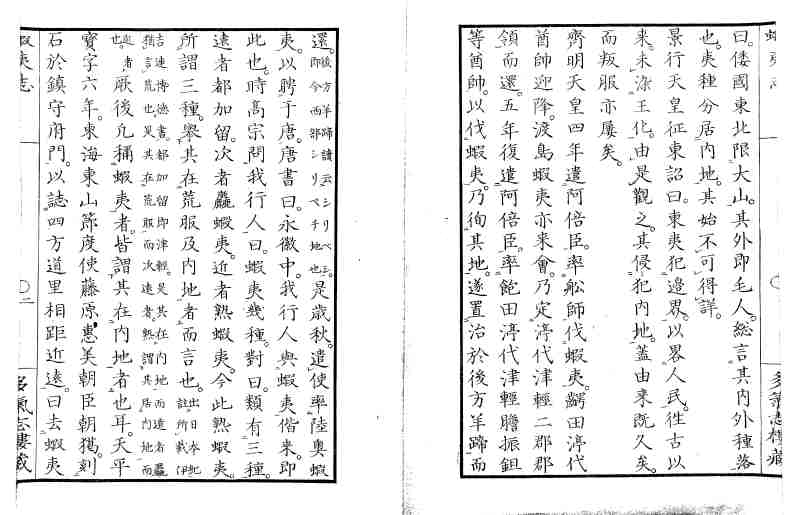 蝦夷志
多氣志樓藏
曰。倭國東北限大山。其外即毛人。總言其內外種落
也。夷種分居內地。其始不可得詳。
景行天皇征東詔曰。東夷犯邊界。以畧人民。徃古以
来。未染王化。由是觀之。其侵犯內地。蓋由来既久矣。
而叛服亦屢矣。
齊明天皇四年遣阿倍臣。率舩師伐蝦夷。齶田渟代
酋帥迎降。渡島蝦夷亦来會。乃定渟代津輕二郡郡
領而還。五年復遣阿倍臣。率飽田渟代津輕膽振鉏
等酋帥。以伐蝦夷。乃徇其地。遂置治於後方羊蹄而
還。後方羊蹄讀云シリベシ。即今西部シリベチ地也。是歲秋。遣使率陸奧蝦
夷。以聘于唐。唐書曰。永徽中。我行人與蝦夷偕来。即
此也。時高宗問我行人曰。蝦夷幾種。對曰。類有三種。
遠者都加留。次者麤蝦夷。近者熟蝦夷。今此熟蝦夷。
所謂三種。擧其在荒服及內地者而言也。出日本紀註所載伊
吉連博德書。都加留即津輕。是其在內地而遠者。麤
猶言荒也。是其在荒服而次遠者。熟謂其居內地而
近者也。厥後凡稱蝦夷者。皆謂其在內地者也耳。天平
寶字六年。東海東山節度使藤原惠美朝臣朝獦。刻
石於鎮守府門。以誌四方道里相距近遠。曰去蝦夷
蝦夷志
〇二
多氣志樓藏